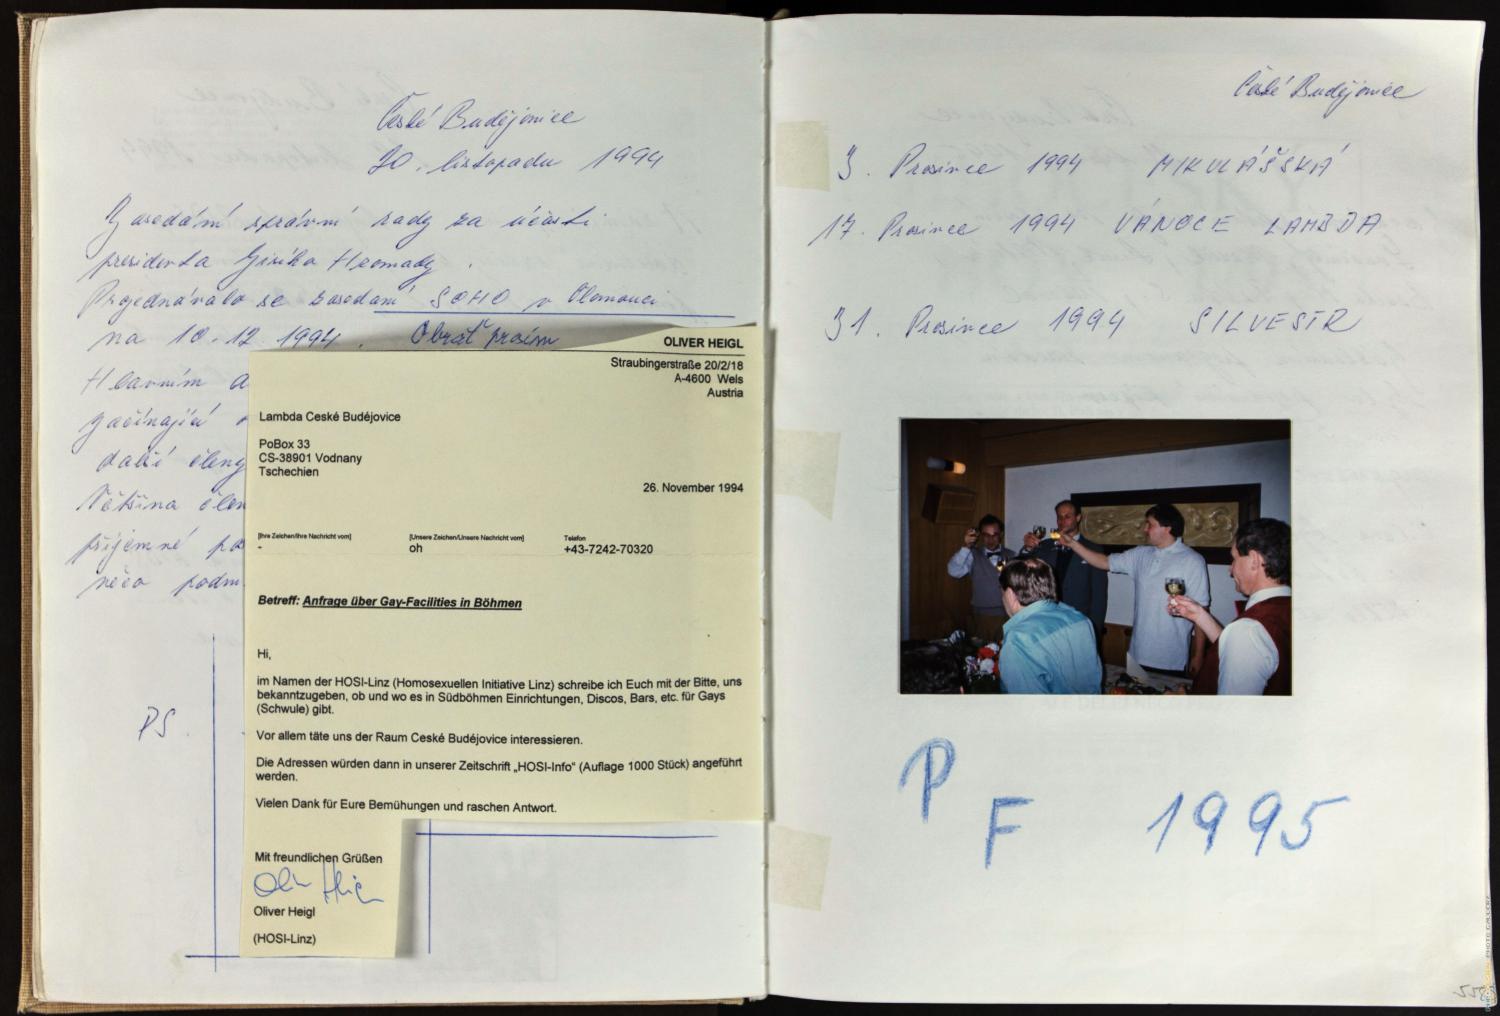 České Budějovice
20. listopadu 1994
Zasedání správní rady za účasti
presidenta Jiřího Hromady.
Projednávalo se zasedání SOHO v Olomouci
na 10.12.1994. Obrať prosím
Hlavním
začínající
další členy
Většina člen
příjemné
něco podm
PS.
OLIVER HEIGL
Straubingerstraße 20/2/18
A-4600 Wels
Austria
Lambda Ceské Budéjovice
PoBox 33
CS-38901 Vodnany
Tschechien
26. November 1994
[Ihre Zeichen/Ihre Nachricht vom] [Unsere Zeichen/Unsere Nachricht vom] Telefon
- oh +43-7242-70320
Betreff: Anfrage über Gay-Facilities in Böhmen
Hi,
im Namen der HOSI-Linz (Homosexuellen Initiative Linz) schreibe ich Euch mit der Bitte, uns
bekanntzugeben, ob und wo es in Südböhmen Einrichtungen, Discos, Bars, etc. für Gays
(Schwule) gibt.
Vor allem täte uns der Raum Ceské Budéjovice interessieren.
Die Adressen würden dann in unserer Zeitschrift „HOSI-Info“ (Auflage 1000 Stück) angeführt
werden.
Vielen Dank für Eure Bemühungen und raschen Antwort.
Mit freundlichen Grüßen
Oliver Heigl
(HOSI-Linz)
České Budějovice
3. Prosince 1994 MIKULÁŠSKÁ
17. Prosince 1994 VÁNOCE LAMBDA
31. Prosince 1994 SILVESTR
PF 1995